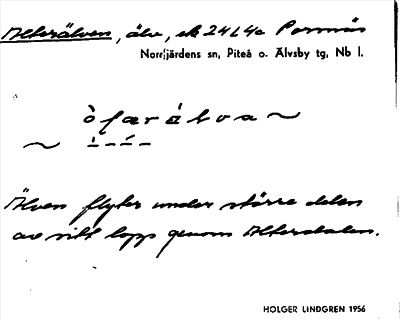 Alterälven, älv, ek 24 L4c Porsnäs
Norrfjärdens sn, Piteå o. Älvsby tg, Nb l.
Älven flyter under större delen
av sitt lopp genom Alterdalen.
HOLGER LINDGREN 1956